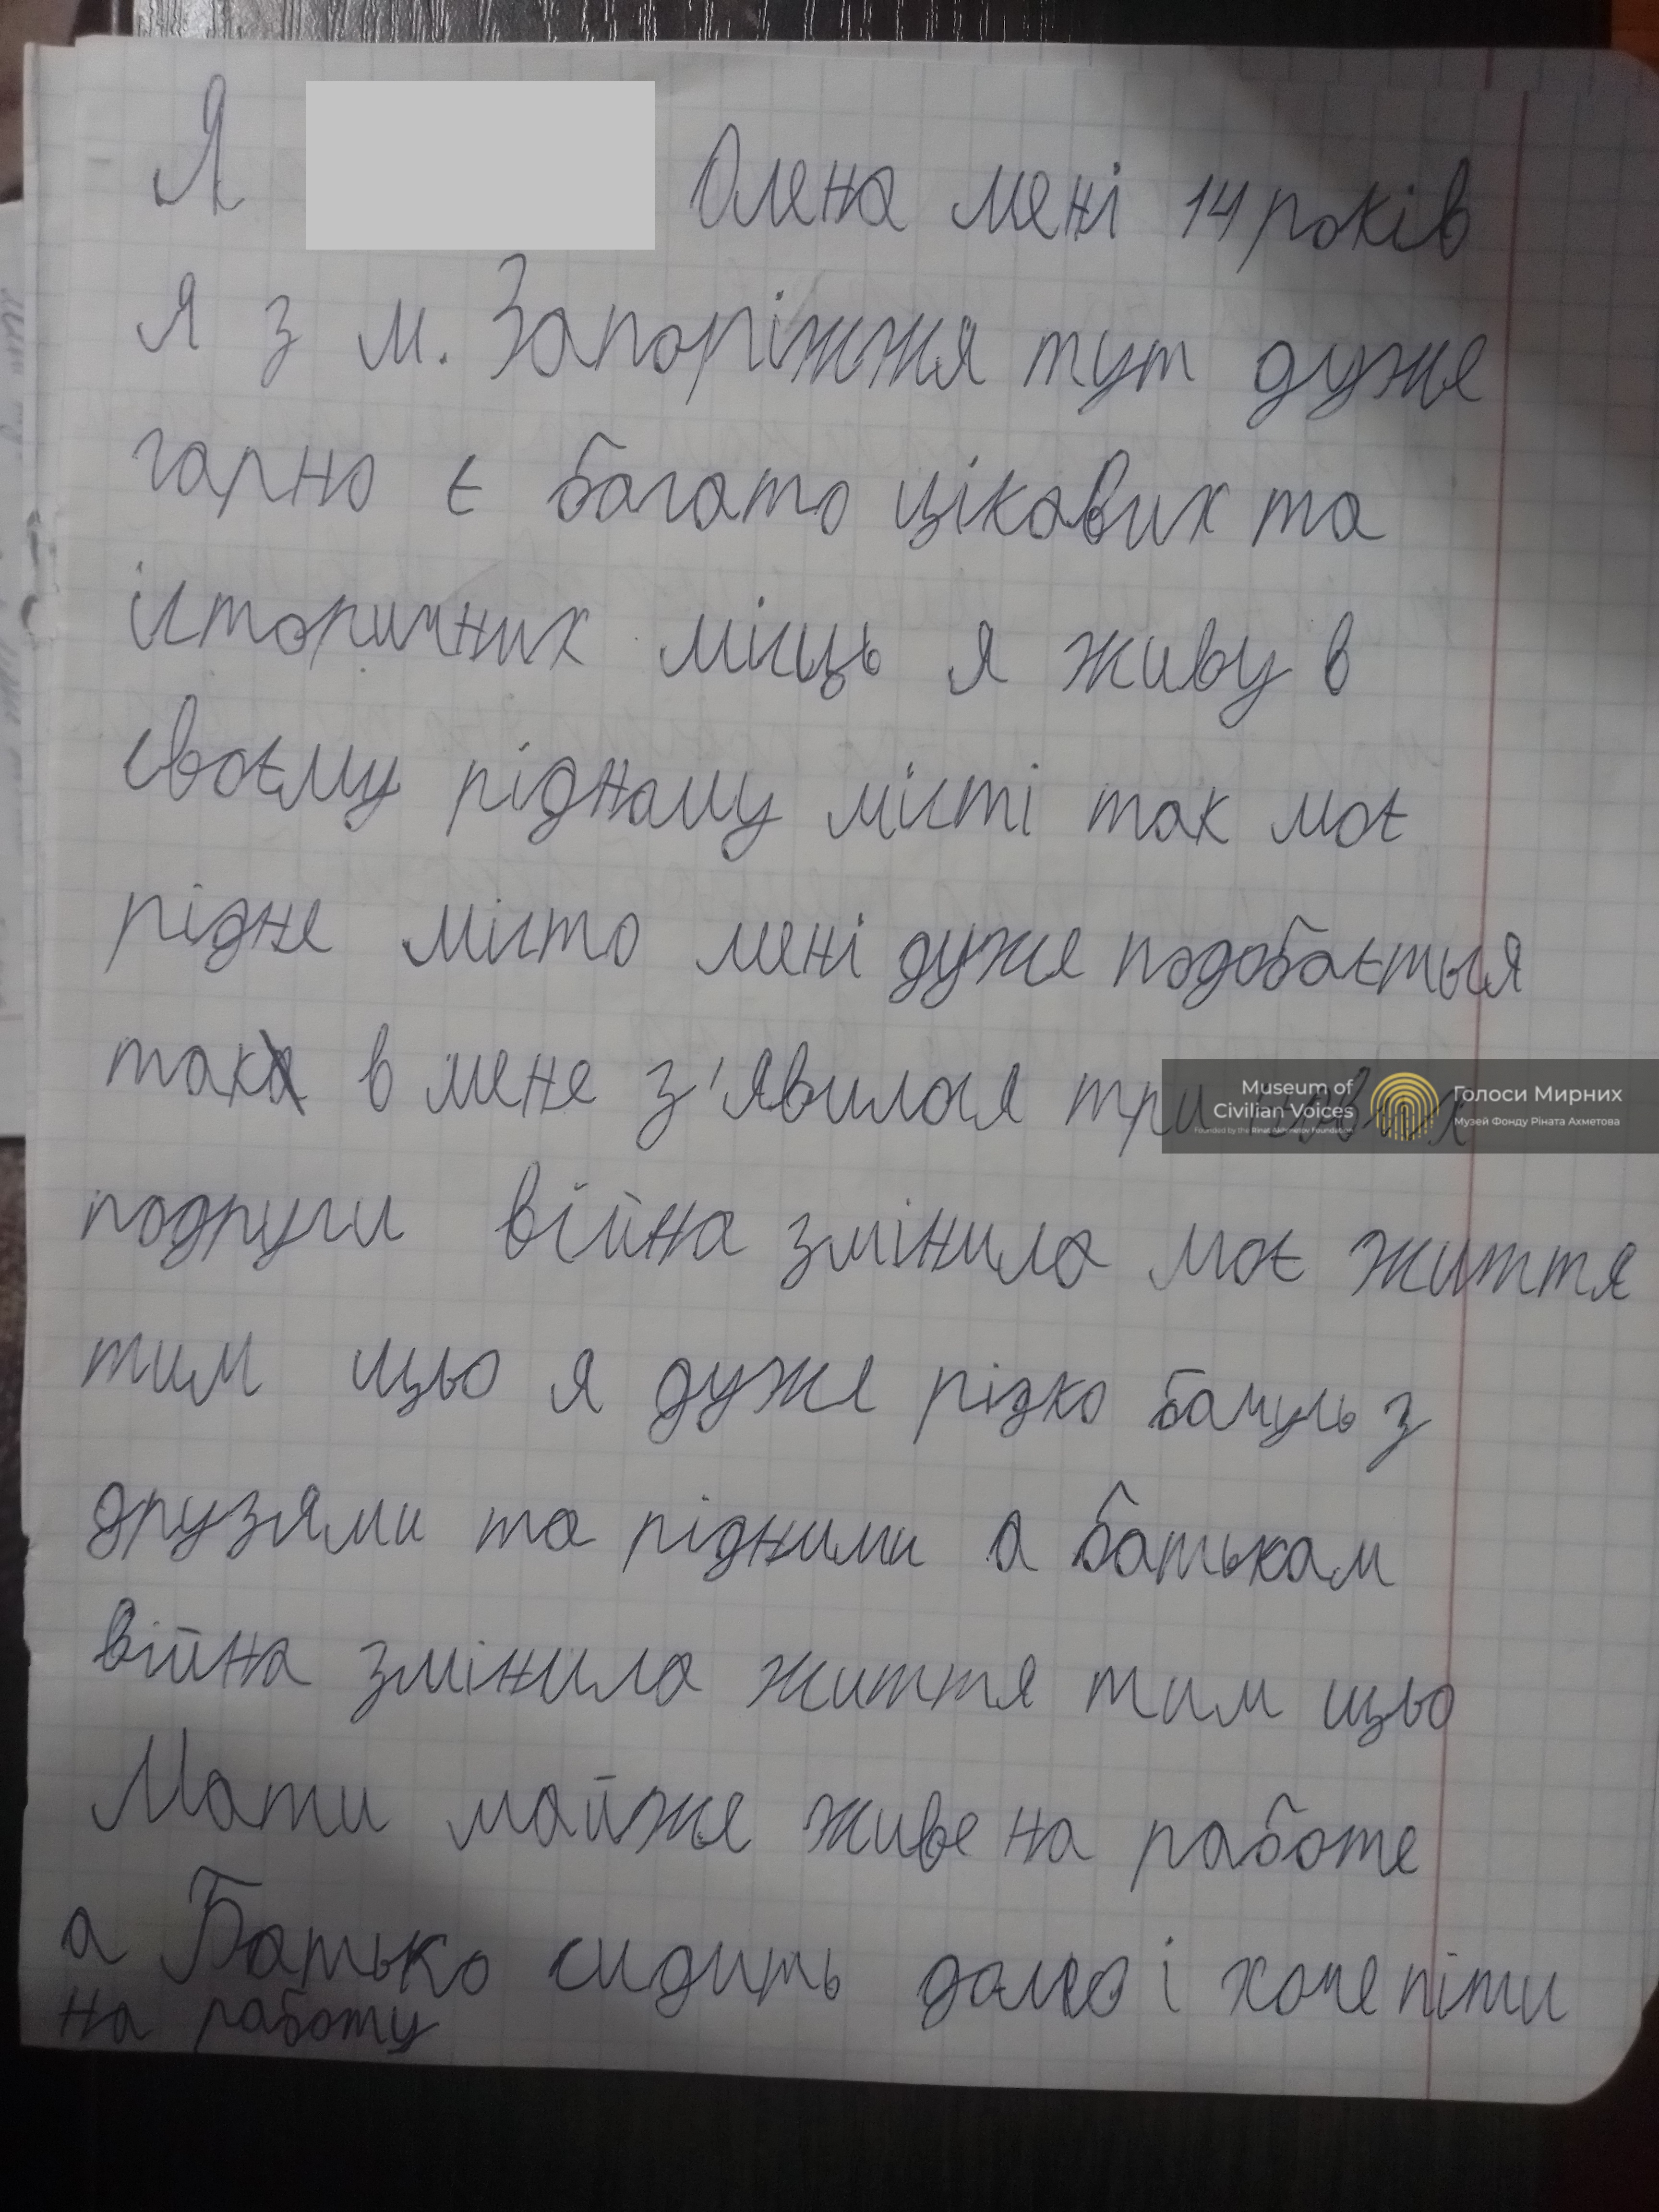 Я Олена мені 14 років
я з м. Запоріжжя тут дуже
гарно є багато цікавих та
історичних місць я живу в
своєму рідному місті так моє
рідне місто мені дуже подобається
так в мене з'явилося три нових
подруги війна змінила моє життя
тим цьо я дуже рідко бачусь з
друзями та рідними а батькам
війна змінила життя тим цьо
Мати майже живе на работе
а Батько сидить дома і хоче піти
на работу
Museum of
Civilian Voices
Founded by the Rinat Akhmetov Foundation
Голоси Мирних
Музей Фонду Ріната Ахметова